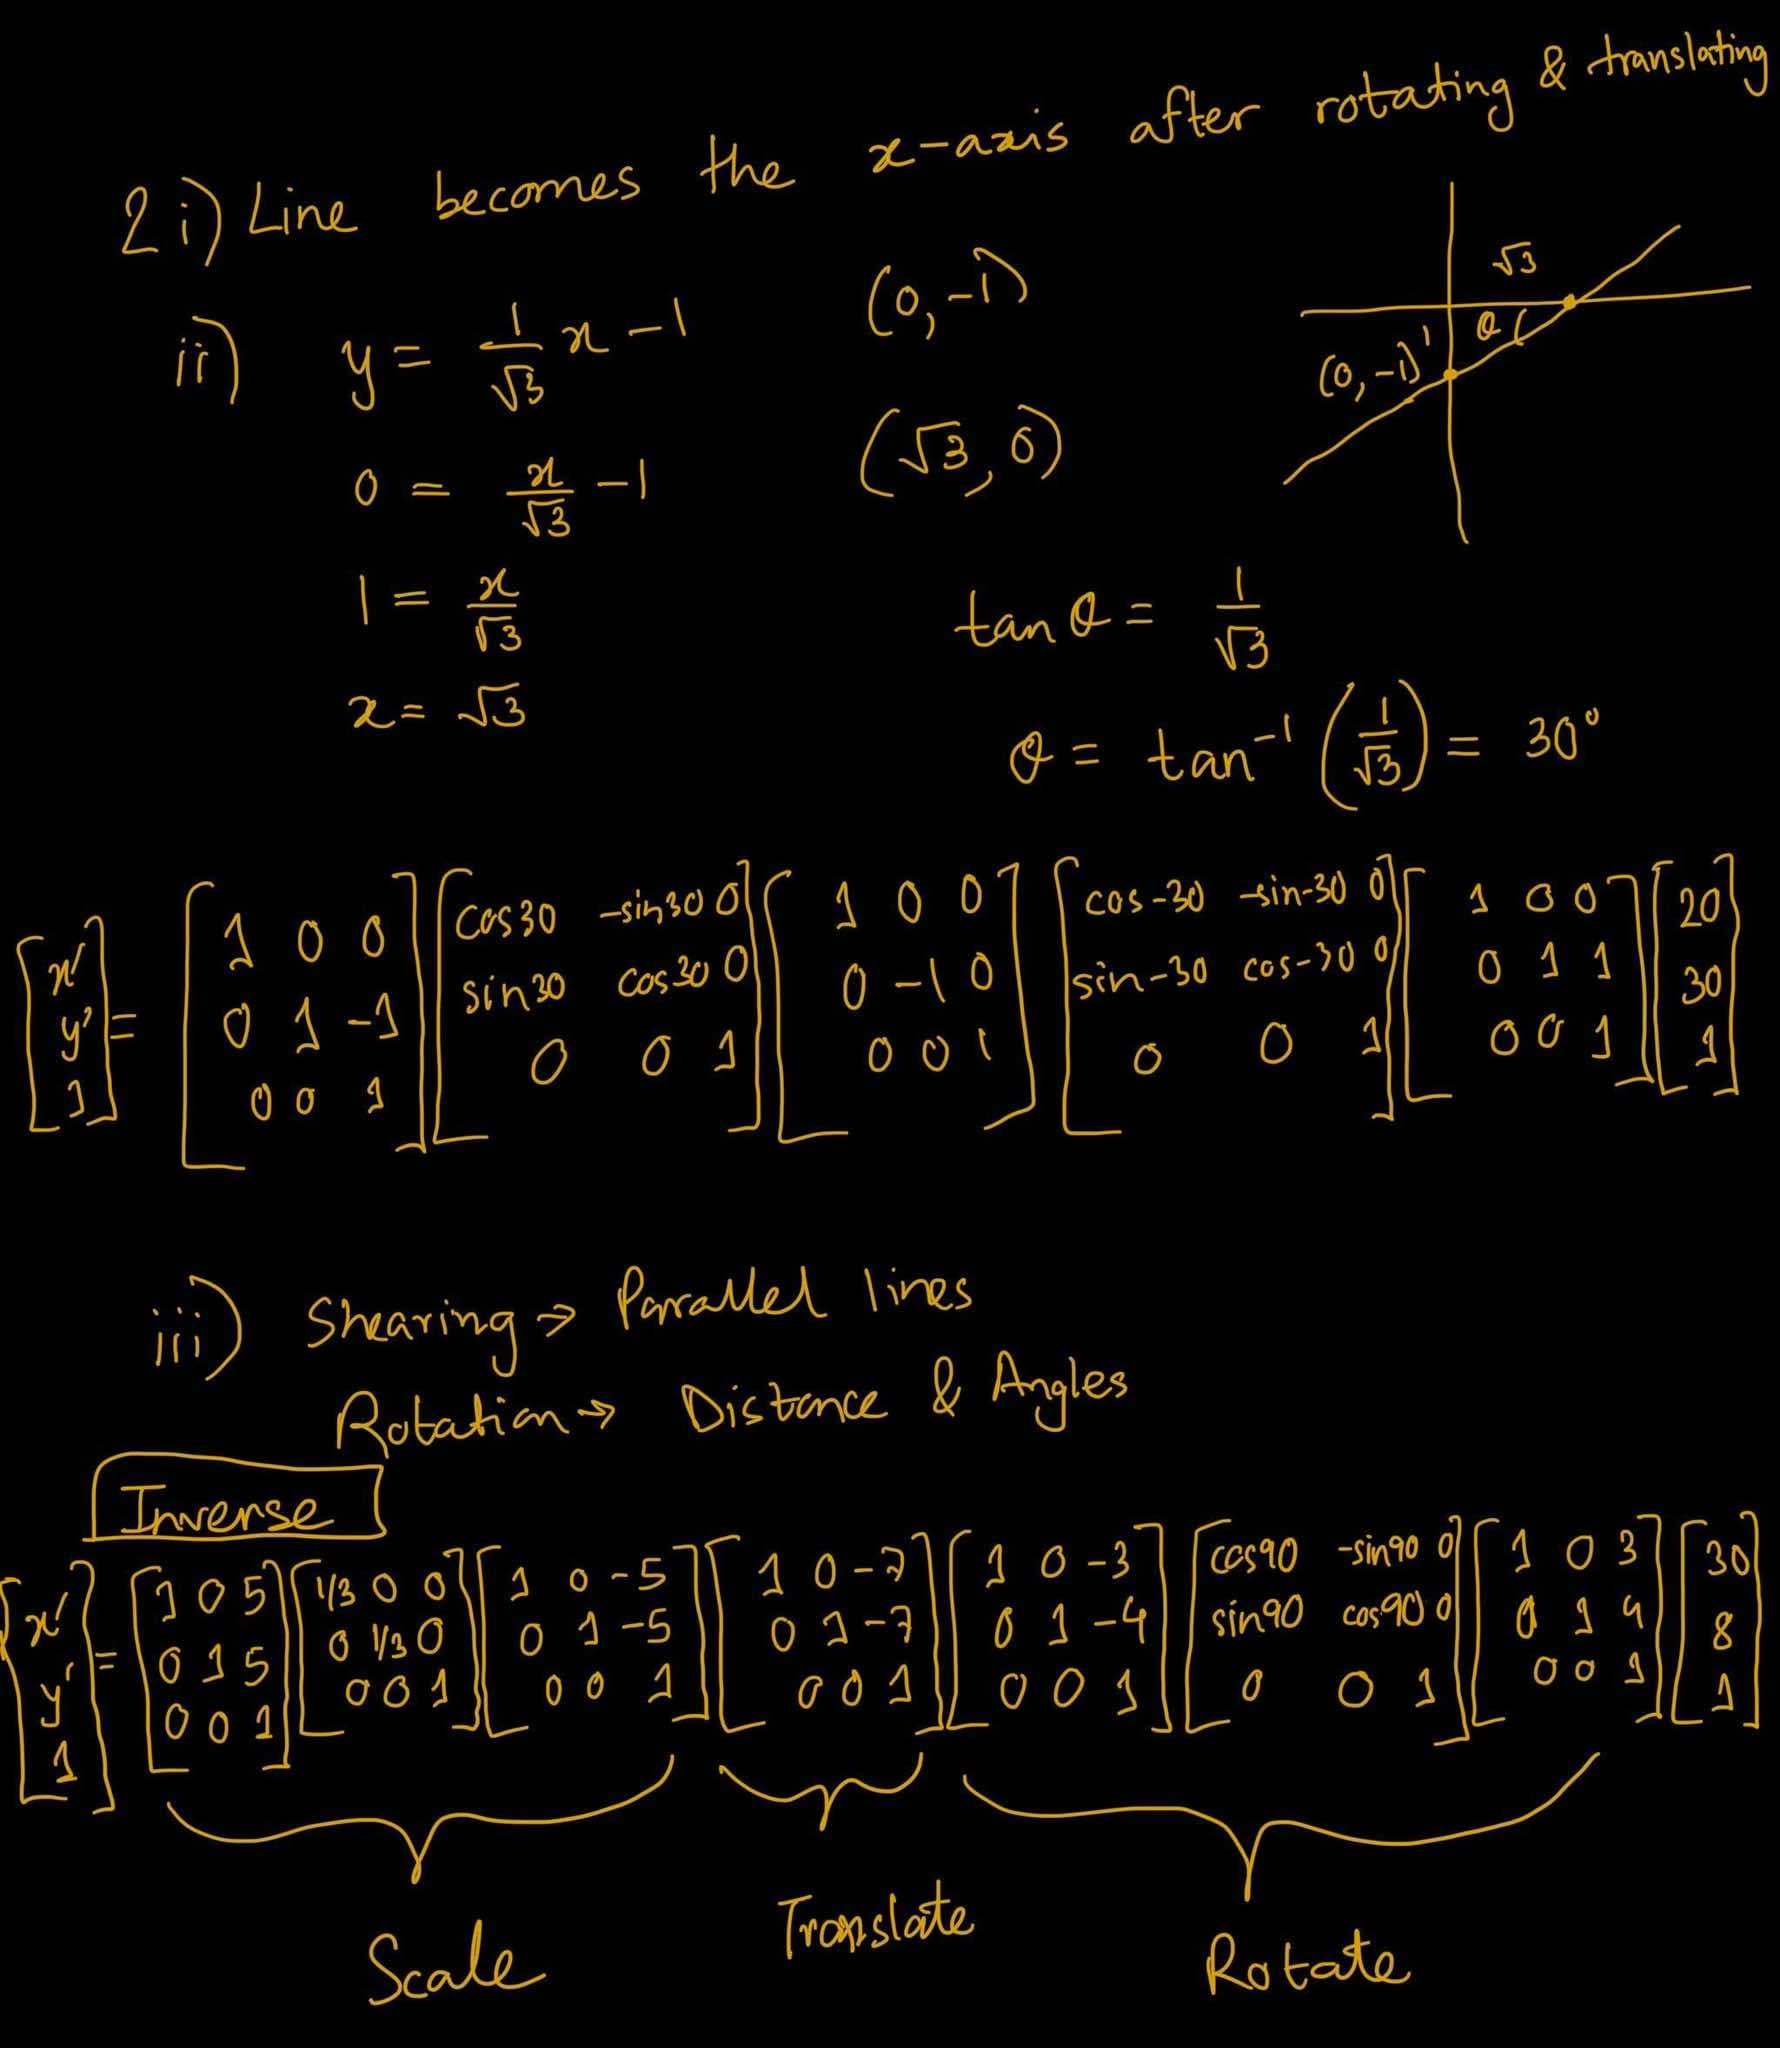 2 i) Line becomes the x-axis after rotating & translating
ii) y = 1/√3 x - 1
(0, -1)
0 = x/√3 - 1
(√3, 0)
1 = x/√3
x = √3
√3
θ
1
(0, -1)
tan θ = 1/√3
θ = tan⁻¹ (1/√3) = 30°
[x' y' 1] = [1 0 0; 0 1 -1; 0 0 1] [cos30 -sin30 0; sin30 cos30 0; 0 0 1] [1 0 0; 0 -1 0; 0 0 1] [cos-30 -sin-30 0; sin-30 cos-30 0; 0 0 1] [1 0 0; 0 1 1; 0 0 1] [20 30 1]
iii) Shearing → Parallel lines
Rotation → Distance & Angles
Inverse
[x' y' 1] = [1 0 5; 0 1 5; 0 0 1] [1/3 0 0; 0 1/3 0; 0 0 1] [1 0 -5; 0 1 -5; 0 0 1] [1 0 -7; 0 1 -7; 0 0 1] [1 0 -3; 0 1 -4; 0 0 1] [cos90 -sin90 0; sin90 cos90 0; 0 0 1] [1 0 3; 0 1 4; 0 0 1] [30 8 1]
Scale
Translate
Rotate